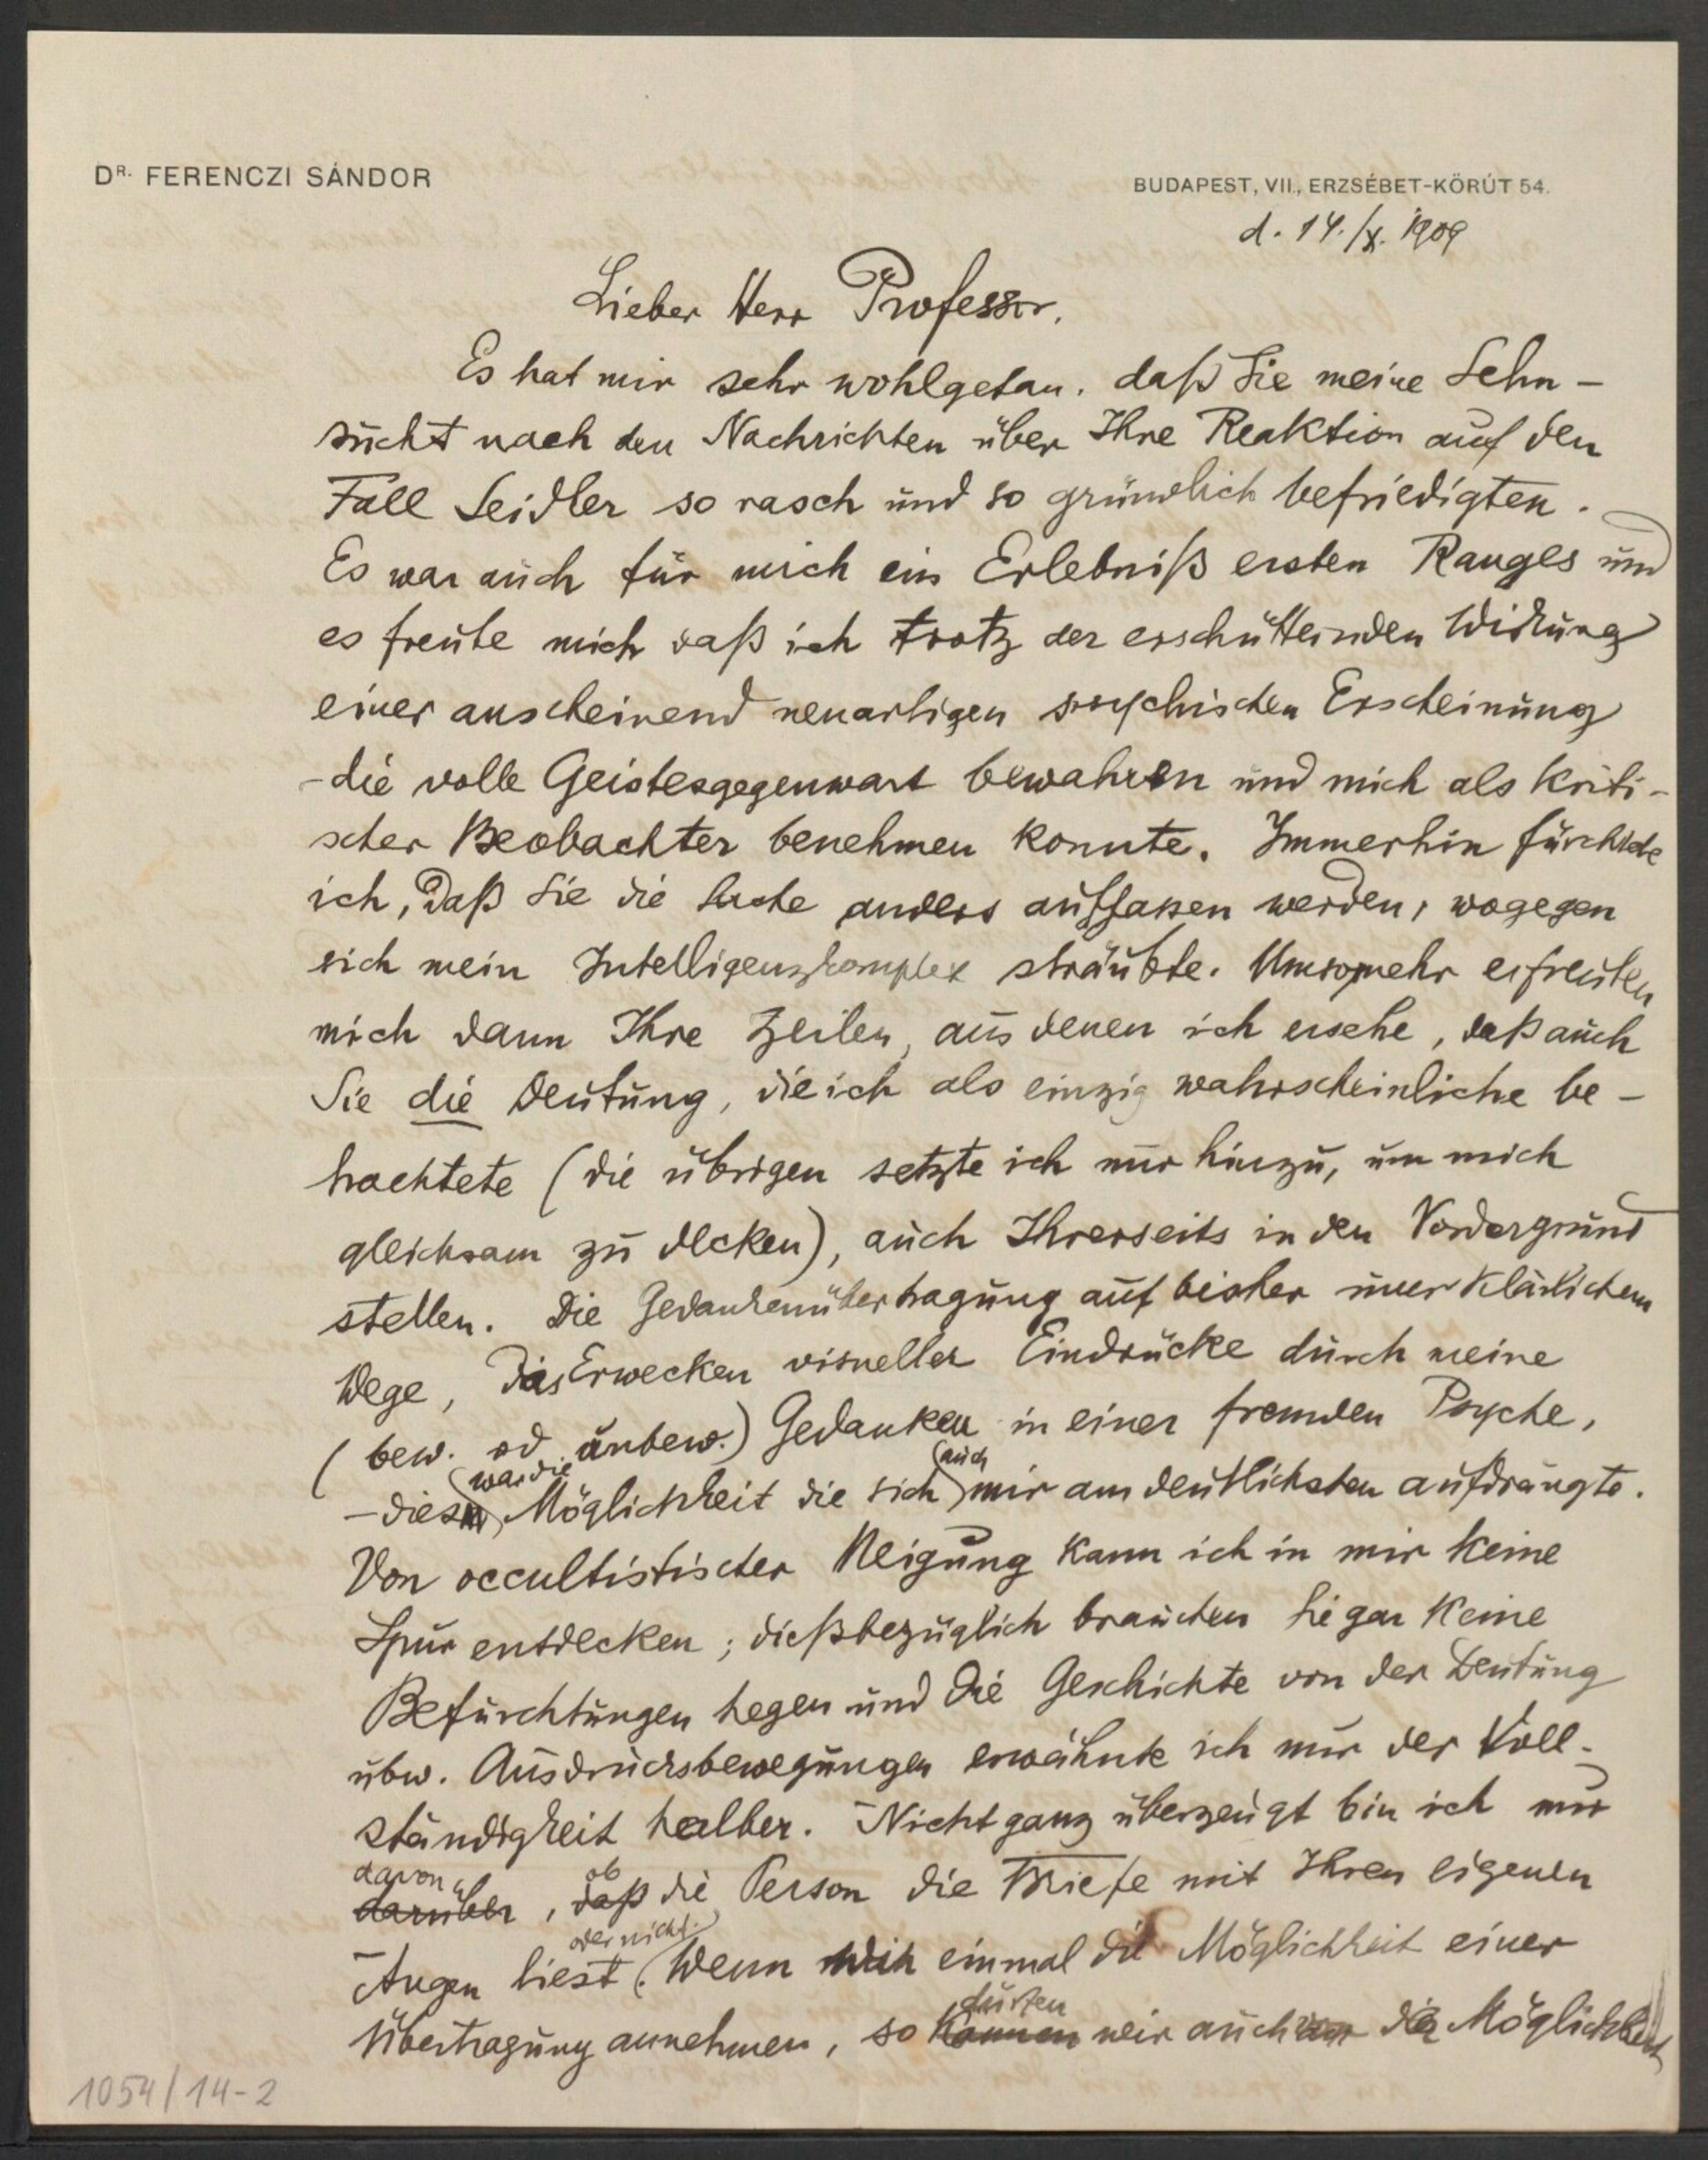 DR. FERENCZI SÁNDOR
BUDAPEST, VII., ERZSÉBET-KÖRÚT 54.
d. 14./X. 1909
Lieber Herr Professor,
Es hat mir sehr wohlgetan, daß Sie meine Sehn-
sucht nach den Nachrichten über Ihre Reaktion auf den
Fall Seidler so rasch und so gründlich befriedigten.
Es war auch für mich ein Erlebniß ersten Ranges und
es freute mich daß ich trotz der erschütternden Wirkung
einer anscheinend neuartigen psychischen Erscheinung
-die volle Geistesgegenwart bewahren und mich als kriti-
scher Beobachter benehmen konnte. Immerhin fürchtete
ich, daß Sie die Sache anders auffassen werden, wogegen
sich mein Intelligenzkomplex sträubte. Umsomehr erfreuten
mich dann Ihre Zeilen, aus denen ich ersehe, daß auch
Sie die Deutung, die ich als einzig wahrscheinliche be-
trachtete (die übrigen setzte ich nur hinzu, um mich
gleichsam zu decken), auch Ihrerseits in den Vordergrund
stellen. Die Gedankenübertragung auf bisher unerklärlichem
Wege, das Erwecken visueller Eindrücke durch meine
(bew. od. unbew.) Gedanken in einer fremden Psyche,
war die auch
-dies Möglichkeit die sich mir am deutlichsten aufdrängte.
Von occultistischer Neigung kann ich in mir keine
Spur entdecken; dießbezüglich brauchen Sie gar keine
Befürchtungen hegen und die Geschichte von der Deutung
ubw. Ausdrucksbewegungen erwähnte ich nur der Voll-
ständigkeit halber. - Nicht ganz überzeugt bin ich nur
davon ob
darüber, daß die Person die Briefe mit Ihren eigenen
oder nicht.
Augen liest. Wenn wir einmal die Möglichkeit einer
dürfen
Übertragung annehmen, so können wir auch die Möglichkeit
1054/14-2